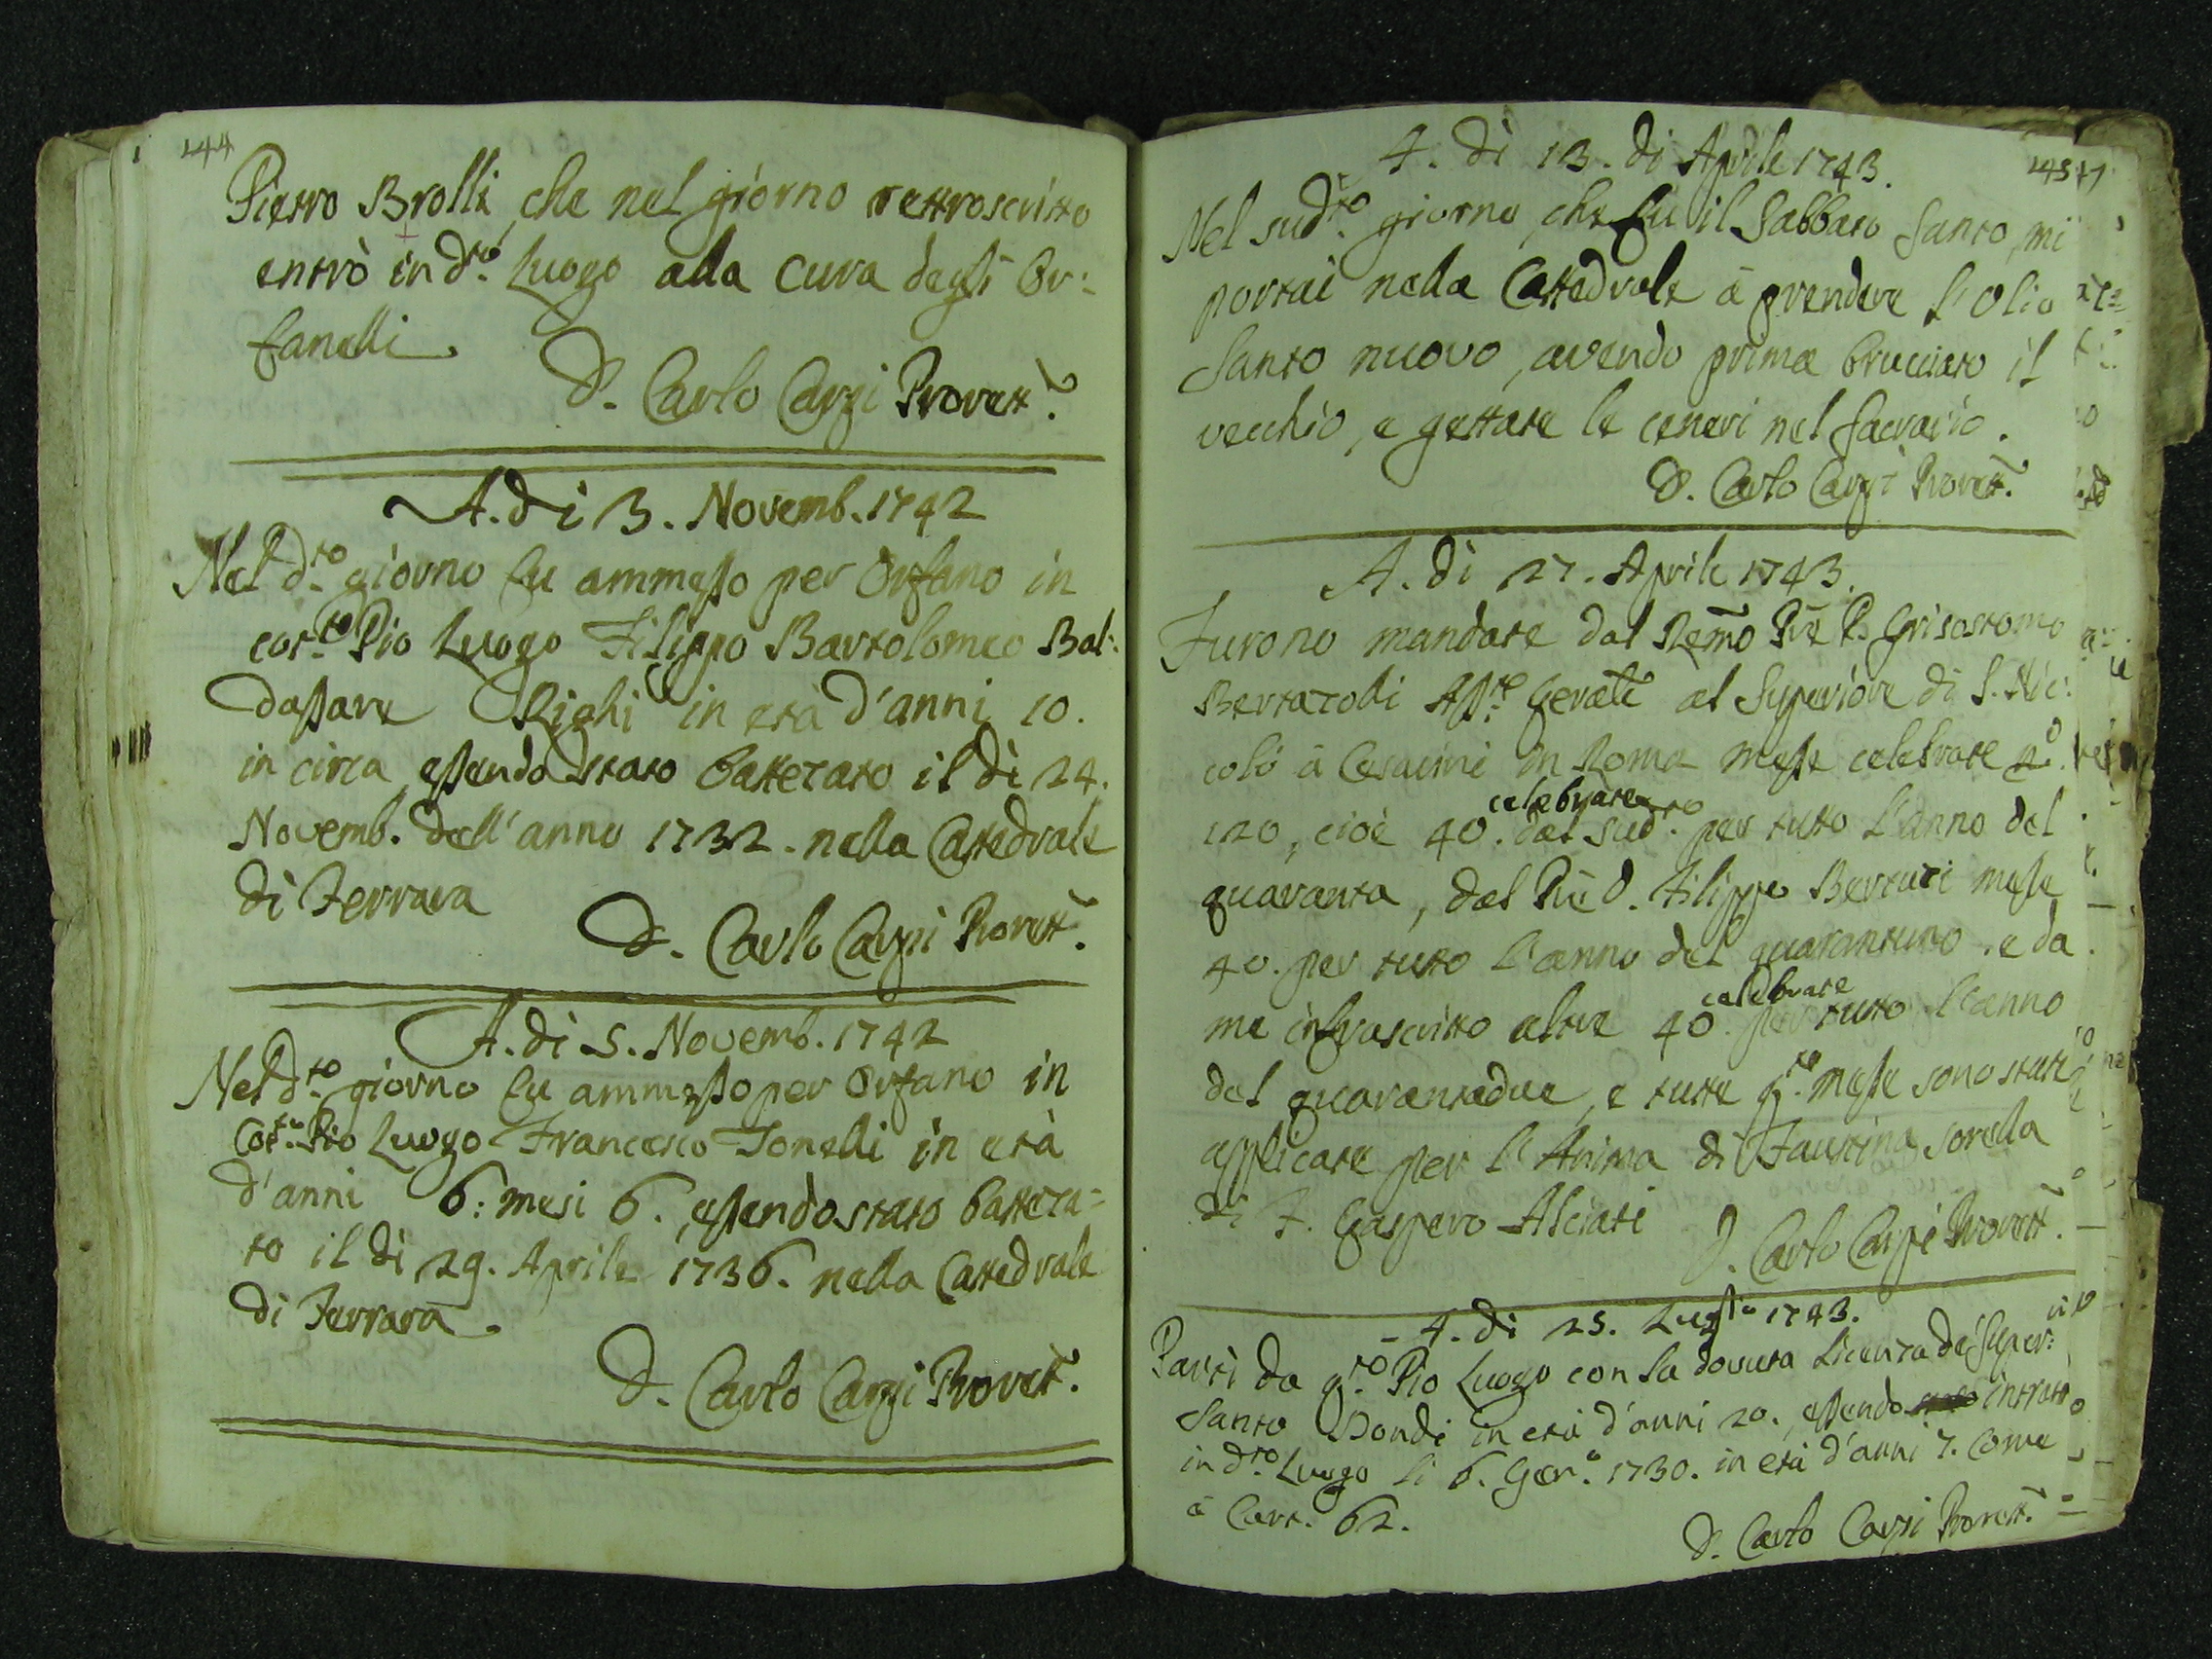 144
Pietro Brolli, che nel giorno rettroscritto
entrò in d.to Luogo alla cura degli Or:
fanelli.
D. Carlo Carpi Provett.
A. di 3. Novemb. 1742
Nel d.to giorno fu ammesso per Orfano in
cot.to Pio Luogo Filippo Bartolomeo Bal:
dassare Righi in età d'anni 10.
in circa, essendo stato battezato il dì 24.
Novemb. dell'anno 1732. nella Cattedrale
di Ferrara
D. Carlo Carpi Provett.
A. di 5. Novemb. 1742
Nel d.to giorno fu ammesso per Orfano in
Cot.to Pio Luogo Francesco Tonelli in età
d'anni 6: mesi 6., essendo stato batteza=
to il dì 29. Aprile 1736. nella Cattedrale
di Ferrara.
D. Carlo Carpi Provett.
A. dì 13. di Aprile 1743.
145
Nel sud.to giorno, che fu il Sabbato Santo, mi
portai nella Cattedrale à prendere l'Olio
Santo nuovo, avendo prima brucciato il
vecchio, e gettate le ceneri nel Sacrario.
D. Carlo Carpi Provett.
A. di 27. Aprile 1743.
Furono mandate dal Remo Pre D. Grisostomo
Bertazolli Generale al Superiore di S. Nic:
colò à Cesarini in Roma messe celebrate n.o
120, cioè 40. celebrate dal sud.to per tutto l'anno del
quaranta, dal Pre D. Filippo Bertuzi messe
40. per tutto l'anno del quarantuno. e da
me infrascritto altre 40. celebrate per tutto l'anno
del quarantadue, e tutte q.te messe sono state
applicate per l'Anima di Faustina sorella
di F. Gaspero Alciati
D. Carlo Carpi Provett.
A. di 25. Luglio 1743.
Partì da q.to Pio Luogo con la dovuta licenza de' Super:
Santo Bondi in età d'anni 20., essendo intrato
in d.to Luogo li 6. Gen.o 1730. in età d'anni 7. come
à Cart. 62.
D. Carlo Carpi Provett.